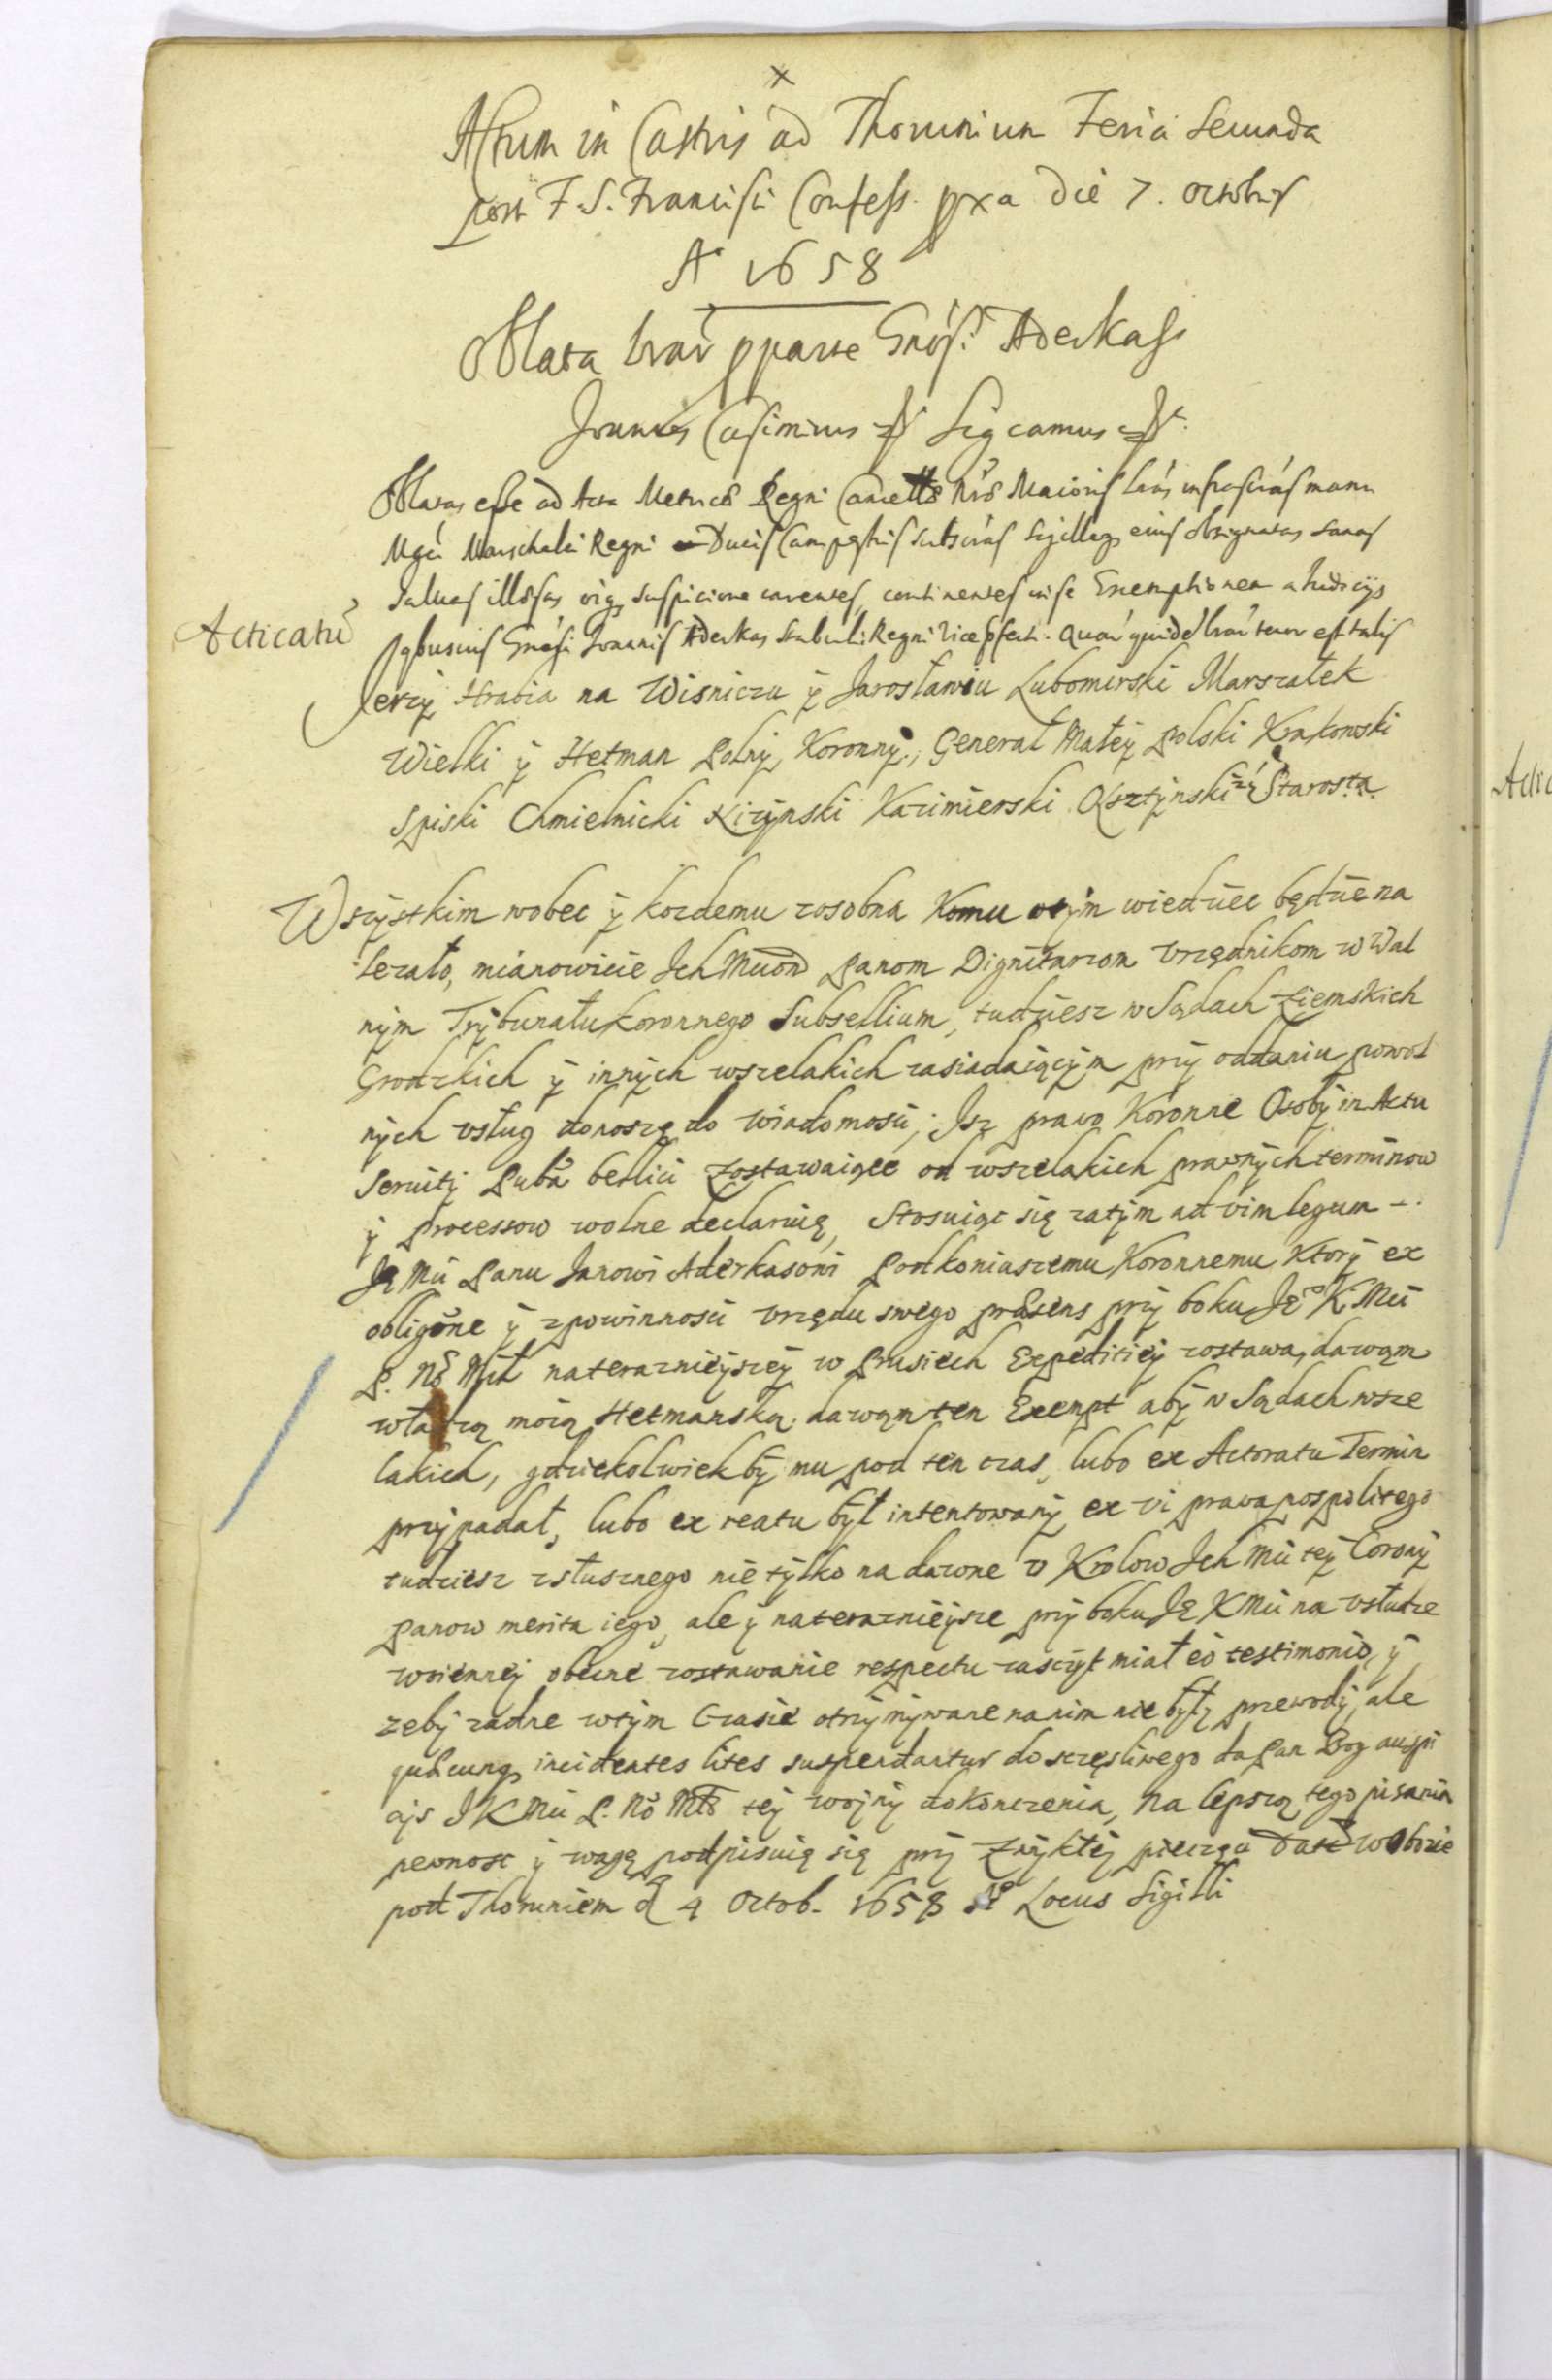 Actum in Castris ad Thorunium Feria Secunda
post F. S. Francisci Confess. pxa die 7. octobris
Aº 1658
Oblata lrar pparte Gnosi Aderkass
Joannes Casimirus Sigcamus
Oblatas esse ad Acta Metrices Regni Cancellae Nrae Maioris lras infrascras manu
Mgci Marschalci Regni Ducis Campestris subscras sigilloq eius obsignatas sanas
salvas illaesas oiq suspicione carentes, continentes in se Exemptionem a Iudicijs
Gnosi Joannis Aderkas Stabuli Regni Vicepfecti. Quar quide lrar tenor est talis
Acticatu
Jerzÿ Hrabia na Wisniczu ÿ Jarosławiu Lubomirski Marszałek
Wielki ÿ Hetman Polnÿ Koronnÿ, Generał Małeÿ Polski Krakowski
Spiski Chmielnicki Niżÿnski Kazimierski Olsztÿnski Starosta
Wszÿstkim wobec ÿ kozdemu zosobna Komu otÿm wiedziec będzie na
lezało, mianowicie Ich Mciom Panom Dignitarzom Vrzędnikom w Wal
nÿm Trÿbunału koronnego Subsellium, tudziesz w Sądach Ziemskich
Grodzkich ÿ innÿch wszelakich zasiadaiącÿm przÿ oddaniu powol
nÿch vsług donoszę do wiadomosci; Isz prawo Koronne Osobÿ in Actu
Servitÿ Publi bellici zostawaiące od wszelakich prawnÿch terminow
ÿ processow wolne declaruię, Stosuiąc się zatÿm ad vim legum
Ję Mci Panu Janowi Aderkasowi Podkoniuszemu Koronnemu Ktorÿ ex
obligone ÿ zpowinnosci vrzędu swego praesens przÿ boku Ję K. Mci
P. Nº Mił naterazniejszeÿ w Prusiech Expeditiej zostawa, dawam
władzą moią Hetmanską dawąm ten Exempt abÿ w Sądach wsze
lakich, gdziekolwiek bÿ mu pod ten czas, lubo ex Actoratu Termin
przÿpadał, lubo ex reatu bÿł intentowanÿ ex vi prawa pospolitego
tudziesz zsłusznego nie tÿlko na dawne v Krolow Ich Mci teÿ Coronÿ
Panow merita iego, ale ÿ naterazniejsze przÿ boku Ję K Mci na vsłudze
woiennej obecne zostawanie respectu zaszczÿt miał eo testimonio, ÿ
zebÿ zadne wtÿm Czasie otrzÿmÿwane na nim nie bÿłÿ przewodÿ, ale
incidentes lites suspendantur do szczęsliwego da Pan Bog auspi
cÿs J K Mci P. Nº Mł teÿ wojnÿ dokonczenia, Na lepszą tego pisania
pewnosc ÿ wagę podpisuię się przÿ zwÿkłeÿ pieczęci Datt w Obozie
pod Thoruniem d 4 Octob. 1658 Aº Locus Sigilli
Actic